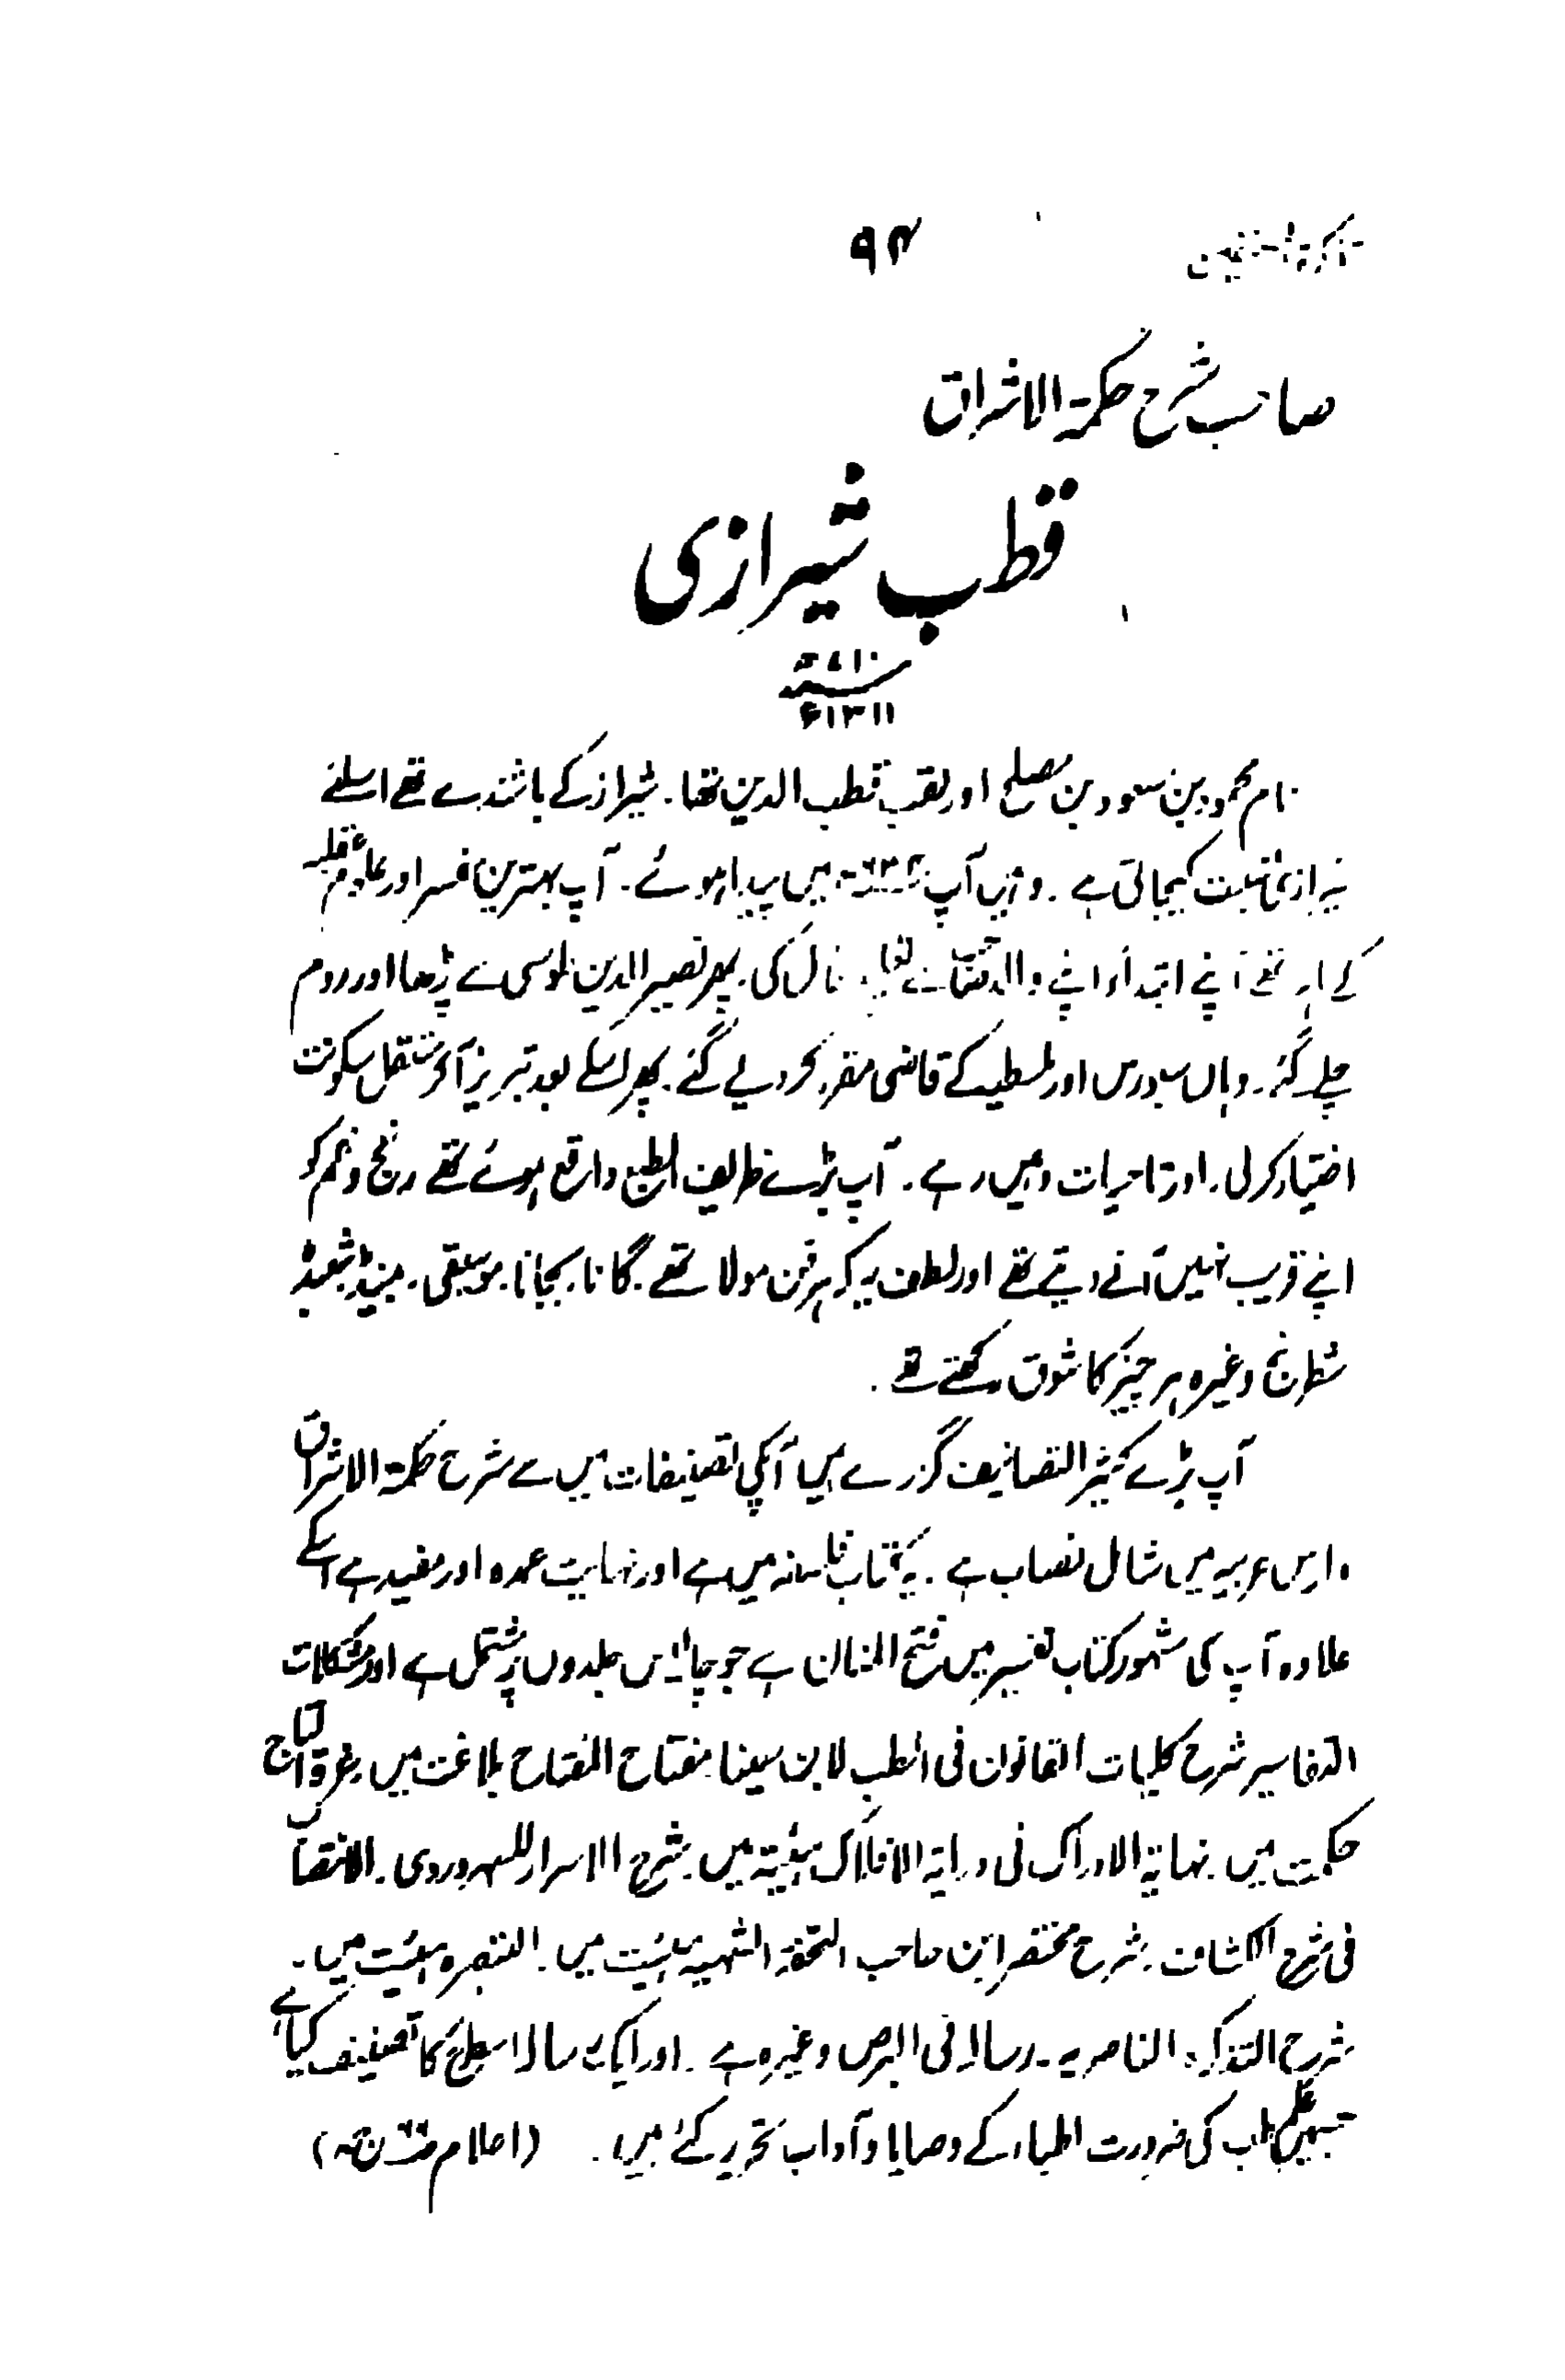 تذکرۃ المصنفین ۹۴
صاحب شرح حکمۃ الاشراق
قطب شیرازی
سنہ ۷۱۰ھ
۱۳۱۱ء
نام محمود بن مسعود بن مصلح اور لقب قطب الدین تھا۔ شیراز کے باشندے تھے اسلئے
شیرازی نسبت کیجاتی ہے۔ وہیں آپ ۶۳۴ھ میں پیدا ہوئے۔ آپ بہترین مفسر اور علوم عقلیہ
کے ماہر تھے آپنے ابتداءً اپنے والد سے حاصل کی۔ پھر نصیر الدین طوسی سے پڑھا اور روم
چلے گئے۔ وہاں سیورس اور ملسطیہ کے قاضی مقرر کر دیے گئے۔ پھر اسکے بعد تبریز آکر مستقل سکونت
اختیار کرلی۔ اور تاحیات وہیں رہے۔ آپ بڑے ظریف الطبع واقع ہوئے تھے رنج و غم کو
اپنے قریب نہیں آنے دیتے تھے اور لطف یہ کہ ہرفن مولا تھے۔ گانا۔ بجانا۔ موسیقی۔ مینڈ شعبدہ
شطرنج وغیرہ ہر چیز کا شوق رکھتے تھے۔
آپ بڑے کثیر التصانیف گزرے ہیں آپکی تصنیفات میں سے شرح حکمۃ الاشراق
مدارس عربیہ میں شامل نصاب ہے۔ یہ کتاب فلسفہ میں ہے اور نہایت عمدہ اور مفید ہے اسکے
علاوہ آپ کی مشہور کتاب تفسیر میں فتح المنان ہے جو چالیس جلدوں پر مشتمل ہے اور مشکلات
التفاسیر شرح کلیات القانون فی الطب لابن سینا۔ مفتاح المفتاح بلاغت میں۔ غرۃ التاج
حکمت میں۔ نہایۃ الادراک فی درایۃ الافلاک ہیئۃ میں۔ شرح الاسرار للسہروردی۔ الانتصاف
فی شرح الکشاف۔ شرح مختصر ابن حاجب التحفۃ الشہیہ ہیئت میں۔ التبصرہ ہیئت میں۔
شرح التذکرۃ الناصریہ۔ رسالہ فی البرص وغیرہ ہے۔ اور ایک رسالہ اسطرح کا تصنیف کیا ہے
جسمیں علم طب کی ضرورت اطباء کے وصایا و آداب تحریر کئے ہیں۔ (اعلام